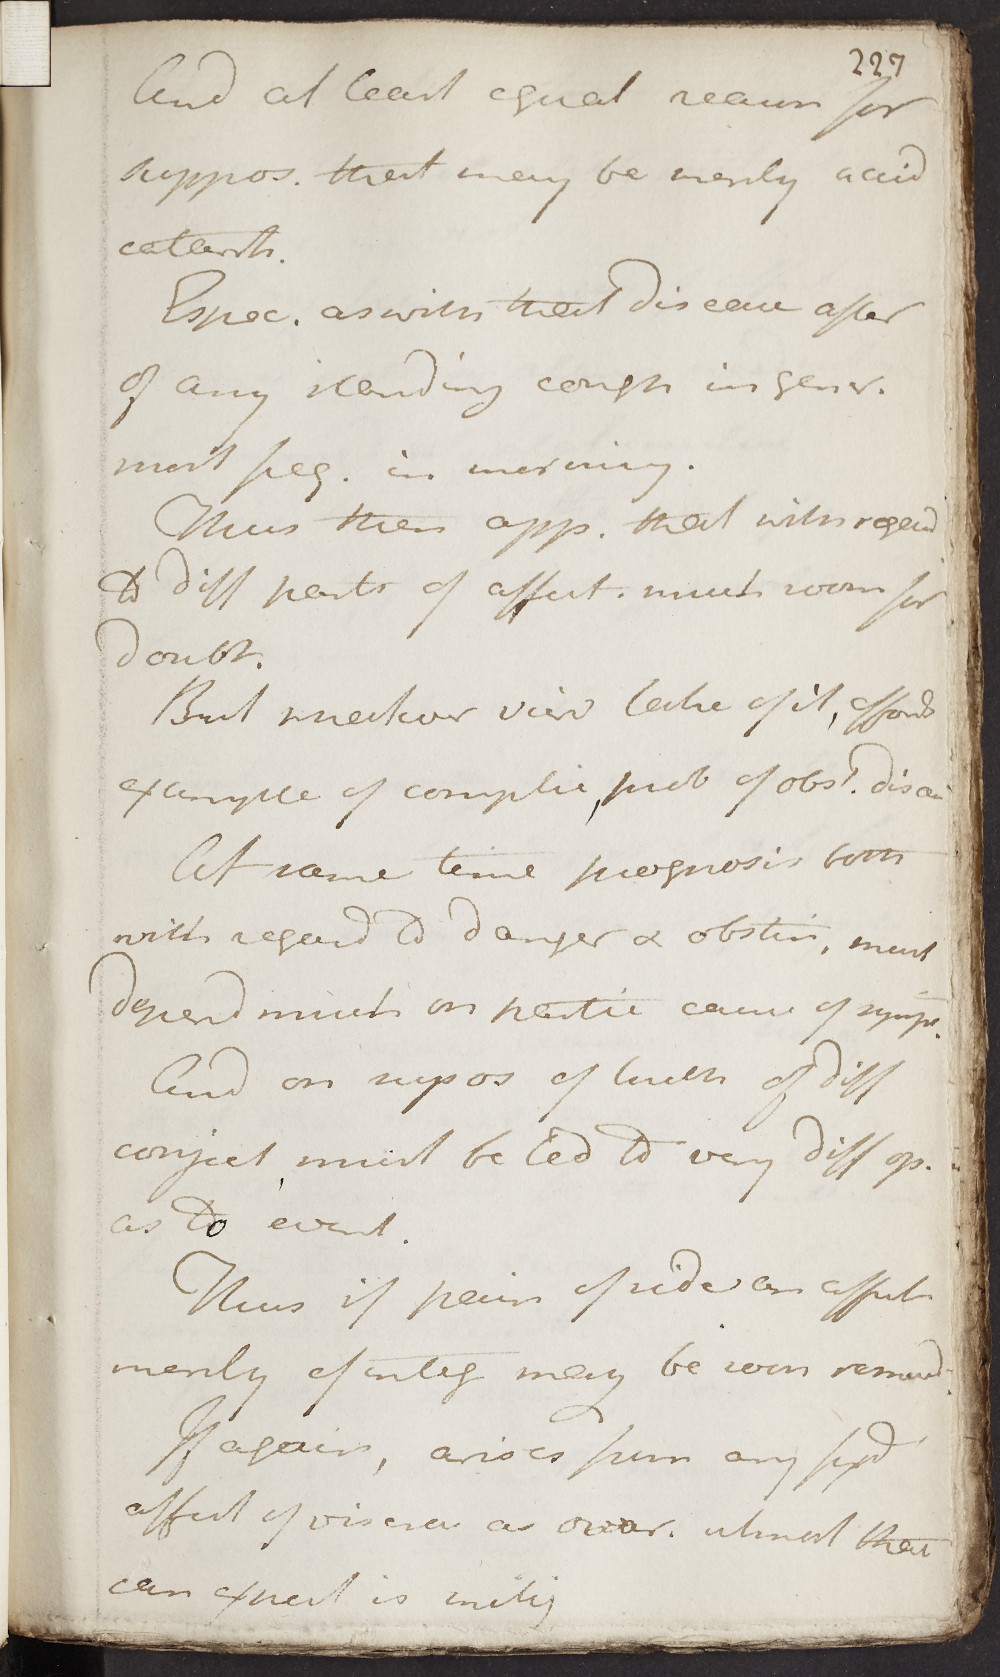 227
And at least equal reason for
suppos. that may be merely accid
catarrh.
Espec. as with that disease after
of any standing cough in gener.
most freq. in morning.
Thus then app. that with regard
to diff parts of affect. much room for
doubt.
But whatever view take of it, affords
example of complic, prob of obst. disea
At same time prognosis both
with regard to danger & obstin, must
depend much on partic cause of symps.
And on suppos of truth of diff
conject, must be led to very diff op.
as to event.
Thus if pain of side an affect
merely of integ may be soon remov'd.
If again, arises from any fixd
affect of viscera as ovar. utmost that
can expect is mitig